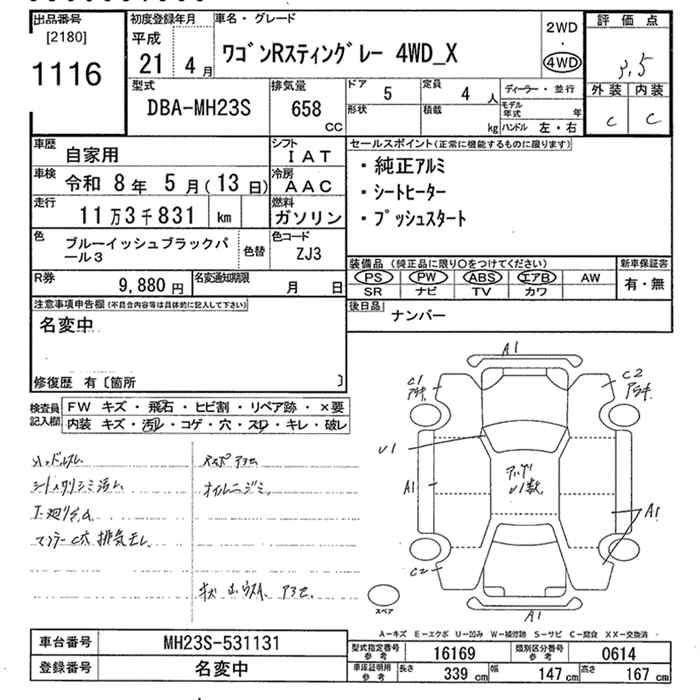 出品番号 初度登録年月 車名・グレード 2WD 評価点
[2180] 平成 ・
1116 21年 4月 ワゴンRスティングレー 4WD_X 4WD 3.5
型式 排気量 ドア 5 定員 4人 ディーラー・並行 外装 内装
DBA-MH23S 658 CC 形状 積載 kg モデル年式 年 C C
ハンドル 左・右
車歴 自家用 シフト IAT セールスポイント(正常に機能するものに限ります)
車検 令和 8年 5月(13日) 冷房 AAC ・純正アルミ
走行 11万3千831 km 燃料 ガソリン ・シートヒーター
・プッシュスタート
色 ブルーイッシュブラックパール3 色替 色コード ZJ3
装備品 (純正品に限り○をつけてください) 新車保証書
PS PW ABS エアB AW 有・無
SR ナビ TV カワ
R券 9,880円 名変通知期限 月 日
後日品 ナンバー
注意事項申告欄 (不具合内容等は具体的に記入して下さい)
名変中
修復歴 有〔箇所 〕
検査員記入欄 FW キズ・飛石・ヒビ割・リペア跡・×要
内装 キズ・汚れ・コゲ・穴・スレ・キレ・破レ
A1
C1 C2
U1
A1 A1
U1数
C2
A1
スペア
A-キズ E-エクボ U-凹み W-補修跡 S-サビ C-腐食 XX-交換済
車台番号 MH23S-531131
登録番号 名変中
型式指定番号 参考 16169 類別区分番号 参考 0614
車庫証明用 参考 長さ 339 cm 幅 147 cm 高さ 167 cm